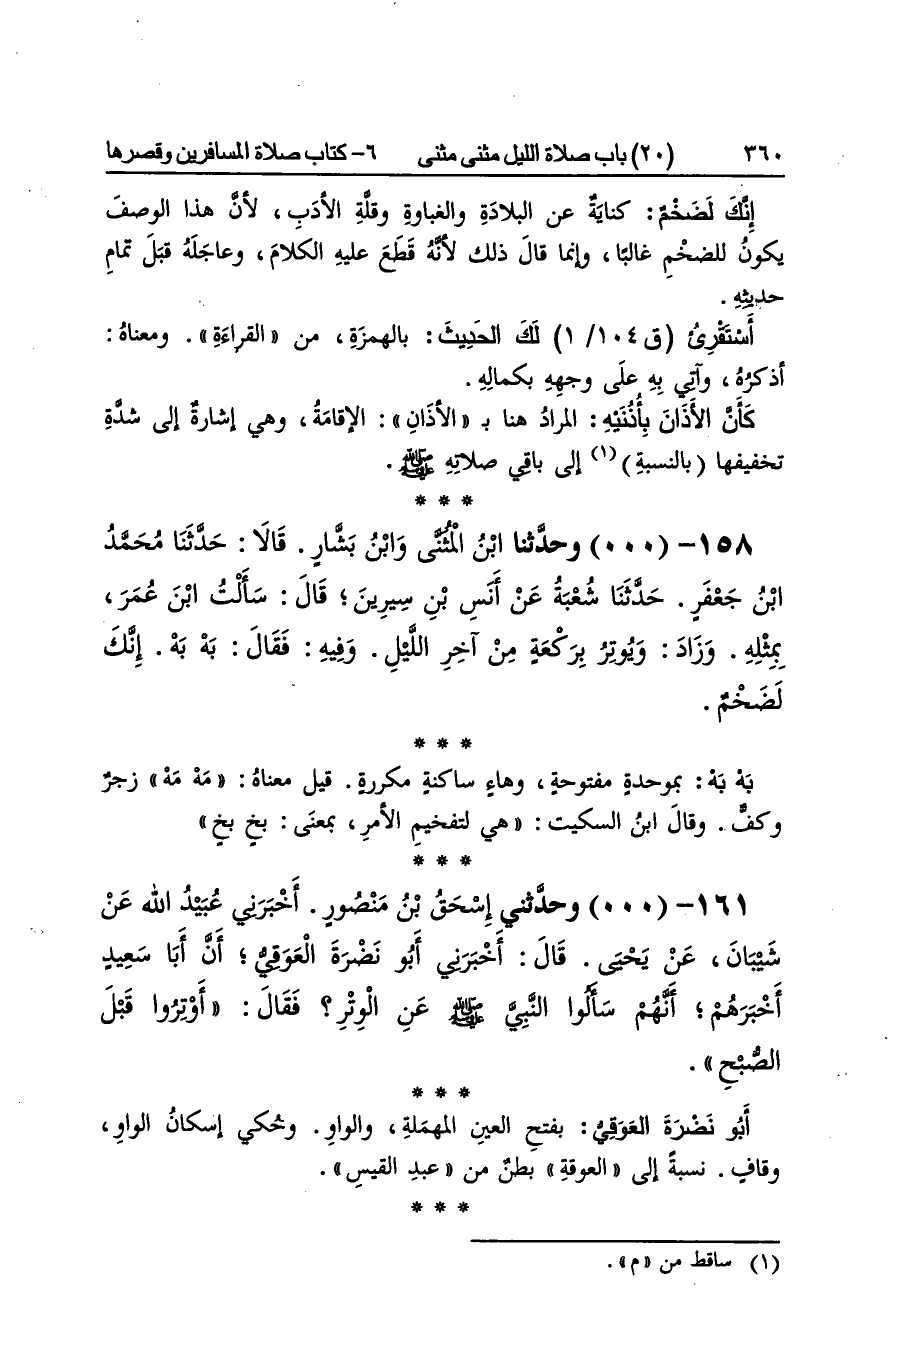 ٣٦٠ (٢٠) باب صلاة الليل مثنى مثنى ٦- كتاب صلاة المسافرين وقصرها
إِنَّكَ لَضَخْمٌ: كنايَةٌ عن البلادَةِ والغباوةِ وقلَّةِ الأدَبِ، لأنَّ هذا الوصفَ
يكونُ للضخْمِ غالبًا، وإنما قالَ ذلك لأنَّهُ قَطَعَ عليهِ الكلامَ، وعاجَلَهُ قبَلَ تمامِ
حديثِهِ.
أَسْتَقْرِئُ (ق ١٠٤/ ١) لَكَ الحَدِيثَ: بالهمزَةِ، من «القراءَةِ». ومعناهُ:
أذكرُهُ، وآتِي بِهِ علَى وجهِهِ بكمالِهِ.
كَأَنَّ الأَذَانَ بِأُذُنَيْهِ: المرادُ هنا بـ «الأذَانِ»: الإقامَةُ، وهي إشارةٌ إلى شدَّةِ
تخفيفها (بالنسبةِ)(١) إلى باقِي صلاتِهِ ﷺ.
* * *
١٥٨- (٠٠٠) وحدَّثنا ابْنُ الْمُثَنَّى وَابْنُ بَشَّارٍ. قَالَا: حَدَّثَنَا مُحَمَّدُ
ابْنُ جَعْفَرٍ. حَدَّثَنَا شُعْبَةُ عَنْ أَنَسِ بْنِ سِيرِينَ؛ قَالَ: سَأَلْتُ ابْنَ عُمَرَ،
بِمِثْلِهِ. وَزَادَ: وَيُوتِرُ بِرَكْعَةٍ مِنْ آخِرِ اللَّيْلِ. وَفِيهِ: فَقَالَ: بَهْ بَهْ. إِنَّكَ
لَضَخْمٌ.
* * *
بَهْ بَهْ: بموحدةٍ مفتوحةٍ، وهاءٍ ساكنةٍ مكررةٍ. قيل معناهُ: «مَهْ مَهْ» زجرٌ
وكفٌّ. وقالَ ابنُ السكيت: «هي لتفخيمِ الأمرِ، بمعنَى: بخٍ بخٍ»
* * *
١٦١- (٠٠٠) وحدَّثني إِسْحَقُ بْنُ مَنْصُورٍ. أَخْبَرَنِي عُبَيْدُ الله عَنْ
شَيْبَانَ، عَنْ يَحْيَى. قَالَ: أَخْبَرَنِي أَبُو نَضْرَةَ الْعَوَقِيُّ؛ أَنَّ أَبَا سَعِيدٍ
أَخْبَرَهُمْ؛ أَنَّهُمْ سَأَلُوا النَّبِيَّ ﷺ عَنِ الْوِتْرِ؟ فَقَالَ: «أَوْتِرُوا قَبْلَ
الصُّبْحِ».
* * *
أَبُو نَضْرَةَ العَوَقِيُّ: بفتحِ العينِ المهمَلةِ، والواوِ. وحُكي إسكانُ الواوِ،
وقافٍ. نسبةً إلى «العوقةِ» بطنٌ من «عبدِ القيسِ».
* * *
(١) ساقط من «م».